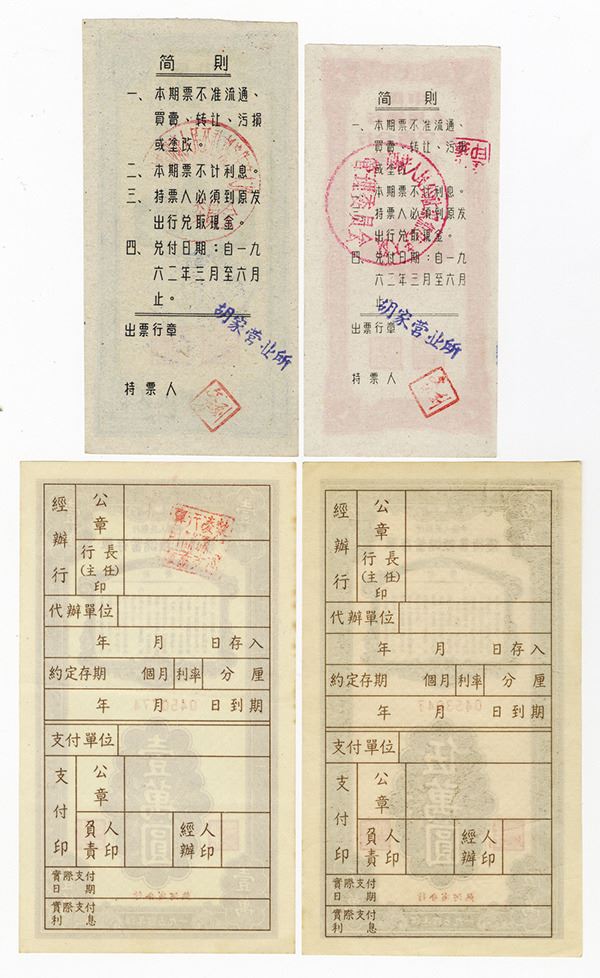 简 则
一、本期票不准流通、
買賣、转让、污損
或塗改。
二、本期票不计利息。
三、持票人必須到原发
出行兑取現金。
四、兑付日期：自一九
六二年三月至六月
止。
出票行章
胡家营业所
持票人
简 则
一、本期票不准流通、
買賣、转让、污損
或塗改
本期票不计利息。
持票人必須到原发
出行兑取現金。
四、兑付日期：自一九
六二年三月至六月
止
管理委員会
出票行章
胡家营业所
持票人
經辦行
公章
行長
(主任)
印
代辦單位
年 月 日存入
約定存期 個月 利率 分 厘
年 月 日到期
支付單位
支付印
公章
負責人印
經辦人印
實際支付
日期
實際支付
利息
壹萬圓
經辦行
公章
行長
(主任)
印
代辦單位
年 月 日存入
約定存期 個月 利率 分 厘
年 月 日到期
支付單位
支付印
公章
負責人印
經辦人印
實際支付
日期
實際支付
利息
伍萬圓